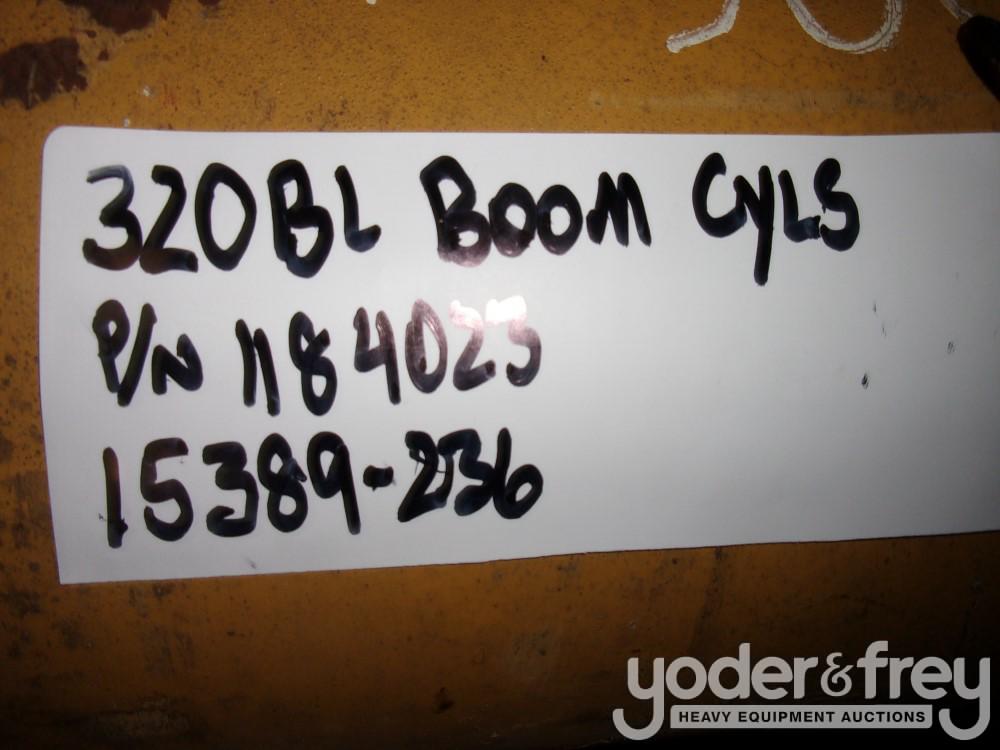 320BL BOOM CYLS
P/N 1184023
15389-236
yoder&frey
HEAVY EQUIPMENT AUCTIONS